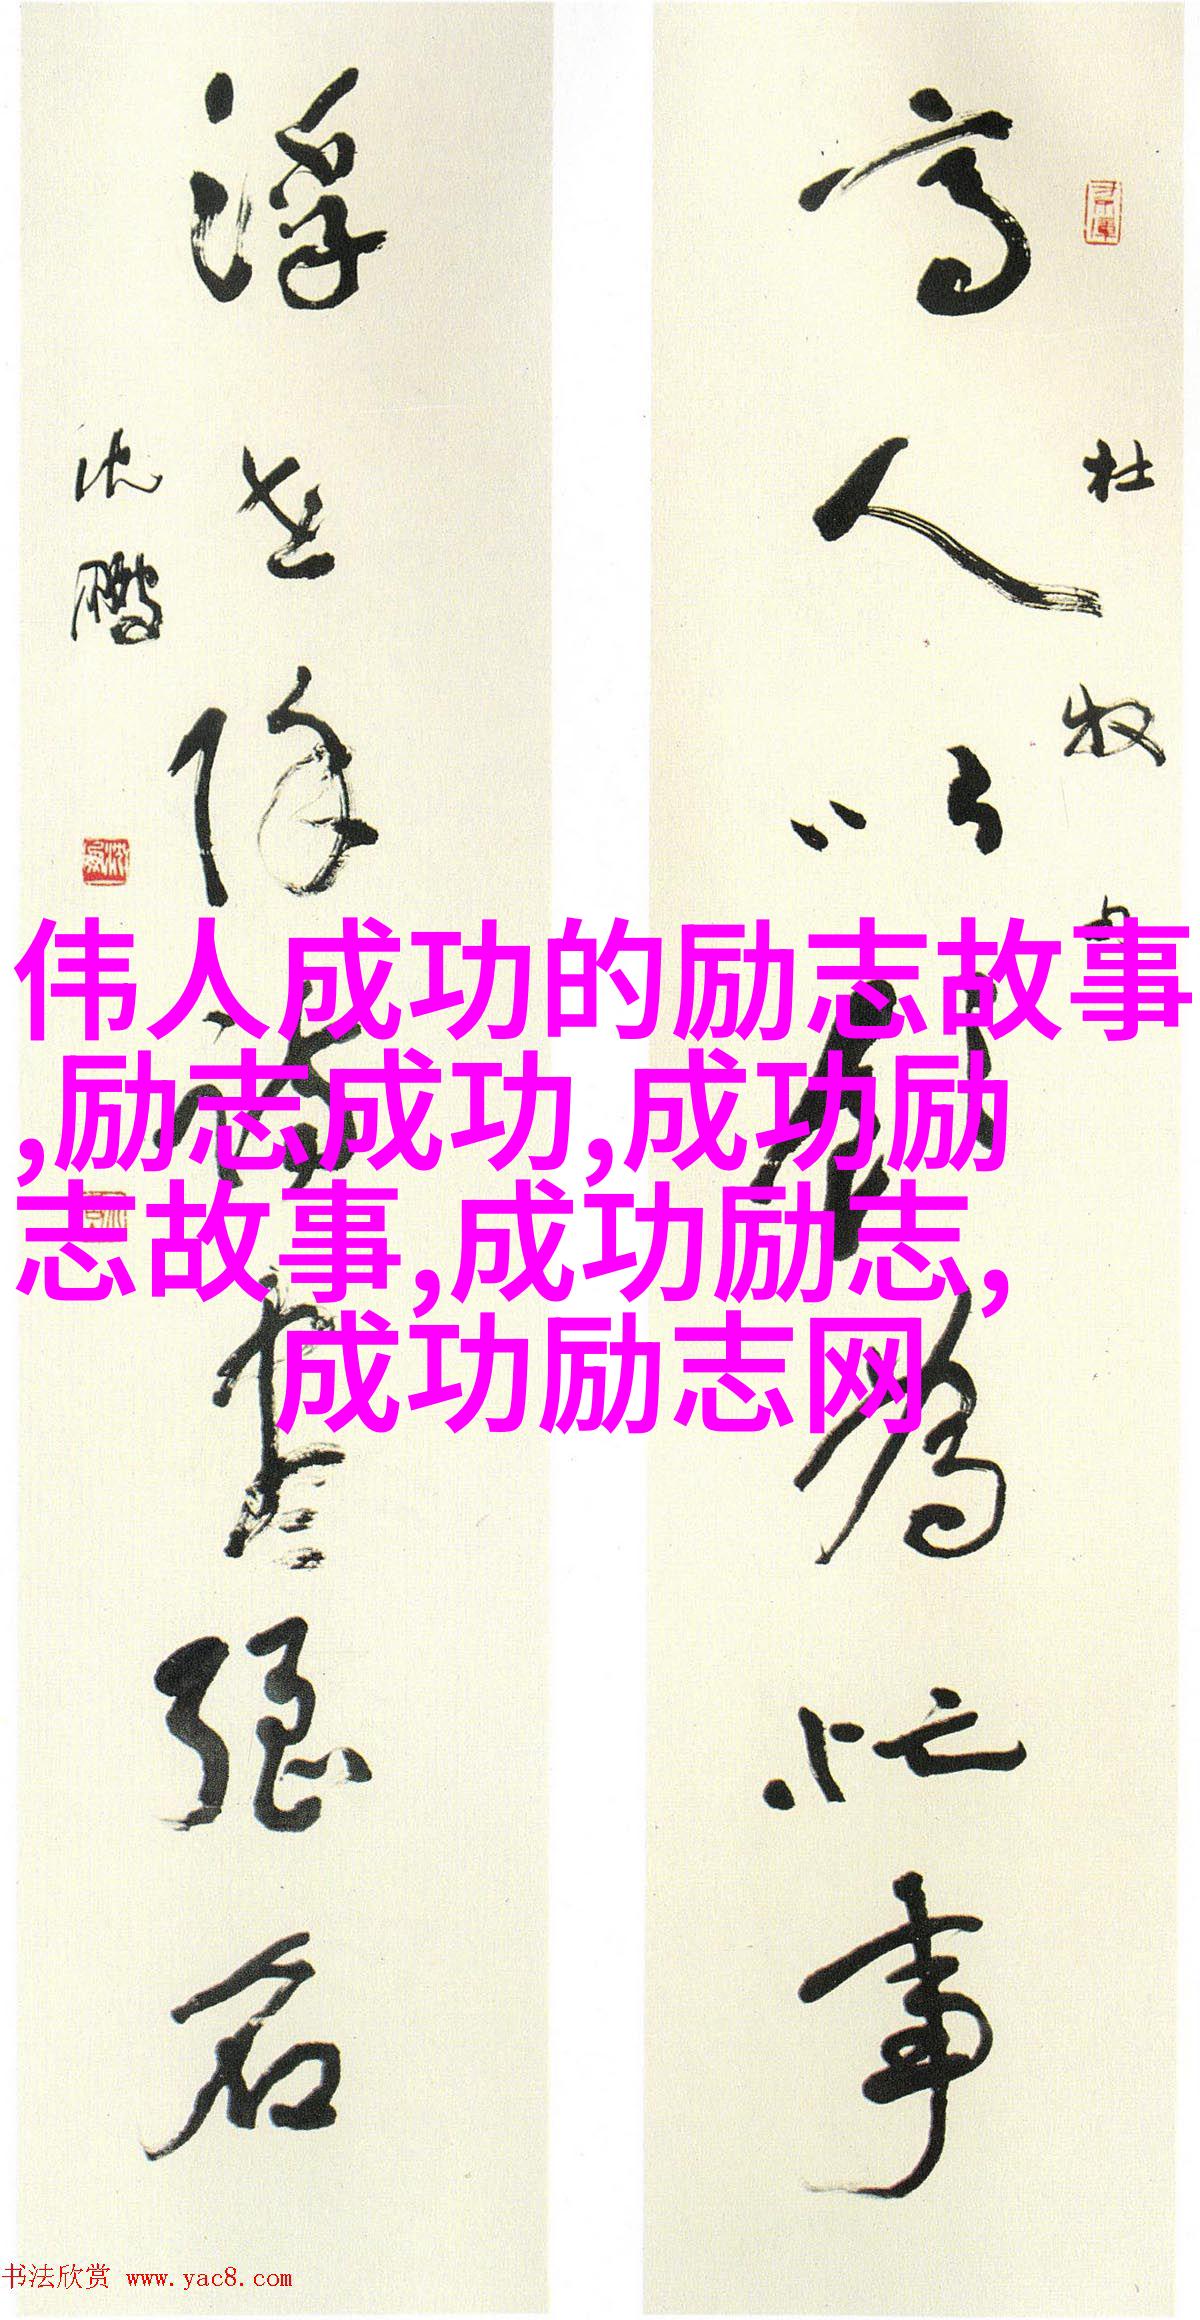 高人以飲為忙事
杜牧句
浮世除詩盡強名
沈鵬
伟人成功的励志故事
,励志成功,成功励
志故事,成功励志,
成功励志网
书法欣赏 www.yac8.com